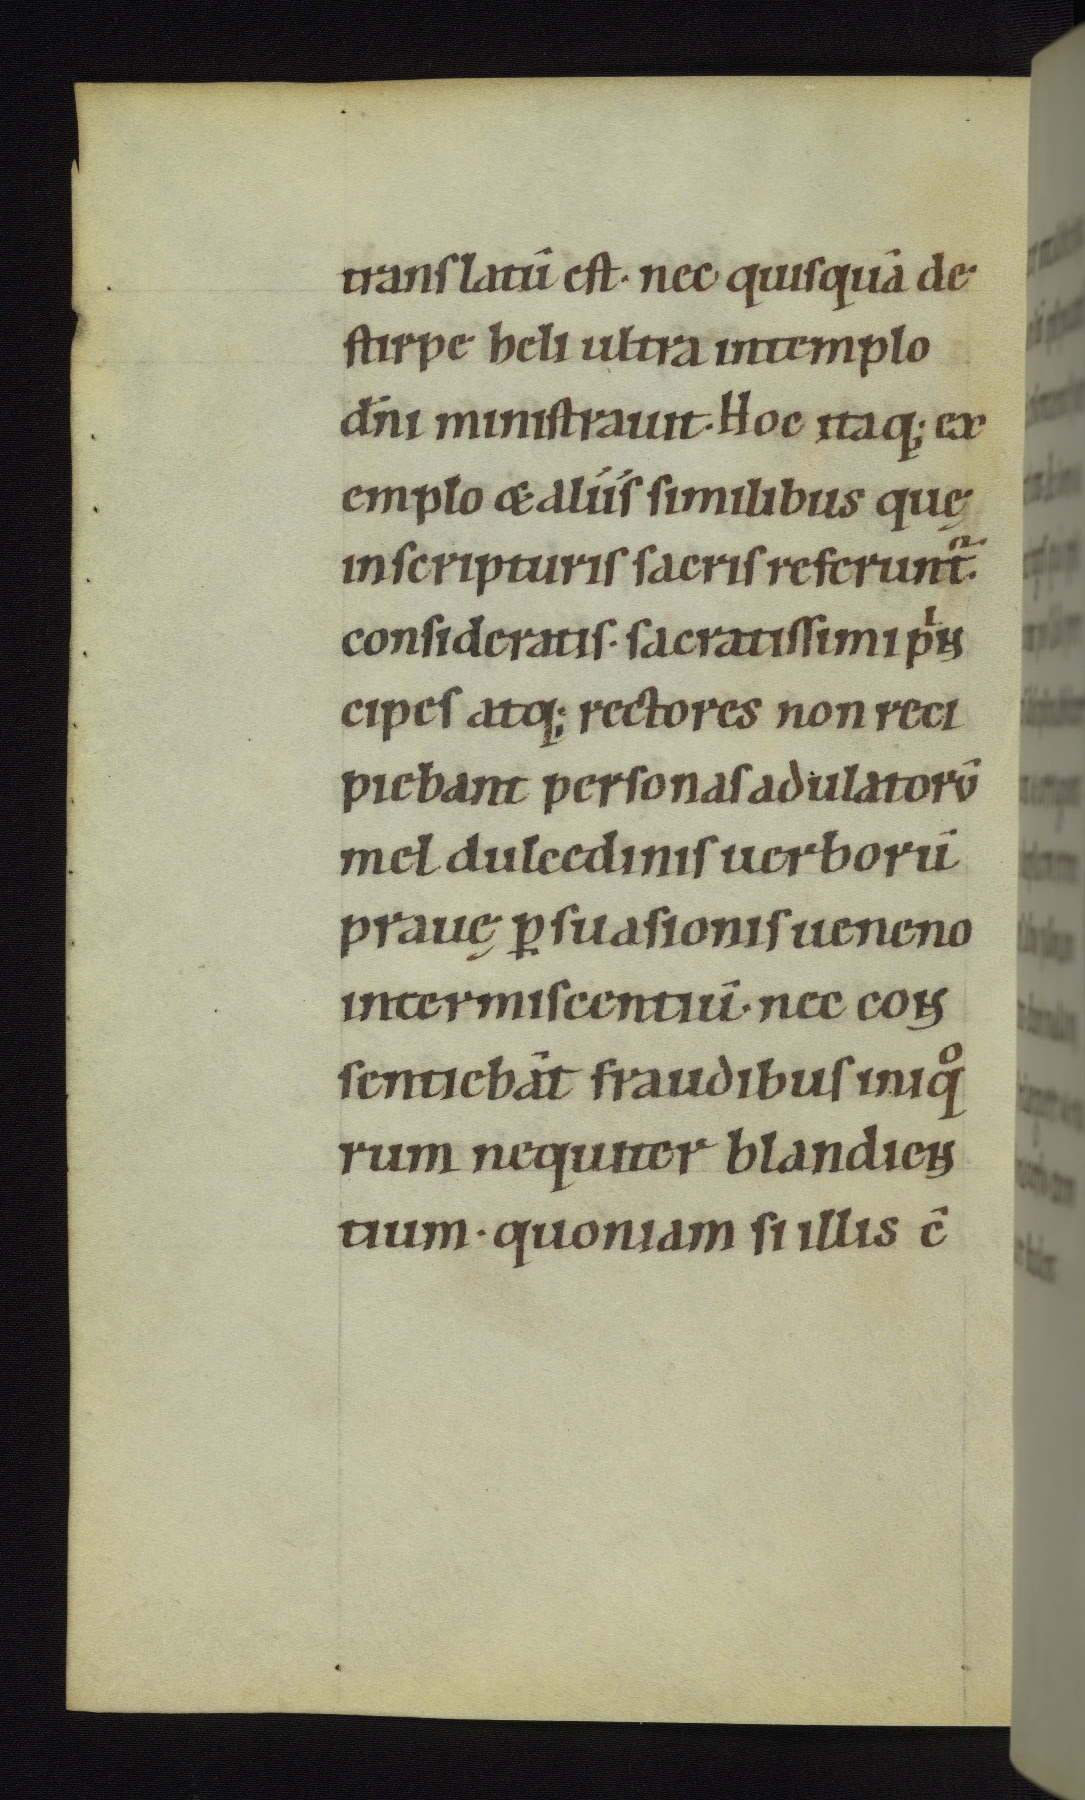 translatū est· nec quisquā de
stirpe heli ultra intemplo
dn̄i ministrauit· Hoc itaq; ex
emplo & aliis similibus quę
inscripturis sacris referunt᷑·
consideratis· sacratissimi pͥn
cipes atq; rectores non reci
piebant personas adulatorū
mel dulcedinis uerborū
prauę ꝑsuasionis ueneno
intermiscentiū· nec con
sentiebāt fraudibus iniqͦ
rum nequiter blandien
tium· quoniam si illis c̄